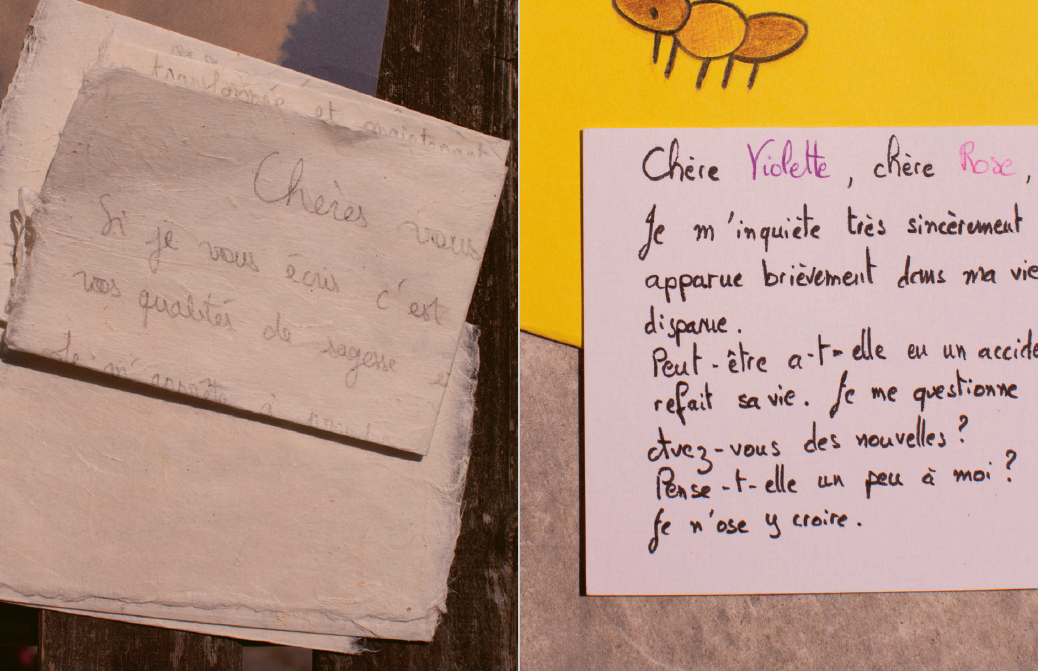 transformée et maintenant
Chères vous
Si je vous écris c'est
vos qualités de sagesse
Je m'
Chère Violette, chère Rose,
Je m'inquiète très sincèrement
apparue brièvement dans ma vie
disparue.
Peut-être a-t-elle eu un accide
refait sa vie. Je me questionne
Avez-vous des nouvelles ?
Pense-t-elle un peu à moi ?
Je n'ose y croire.